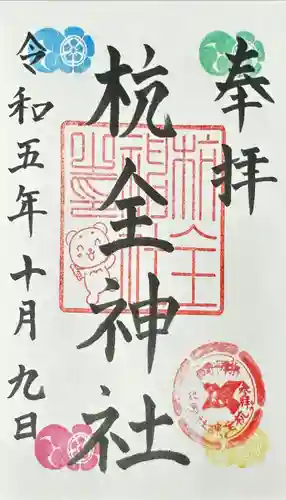 奉拝
杭全神社
令和五年十月九日
杭全
神社
之印